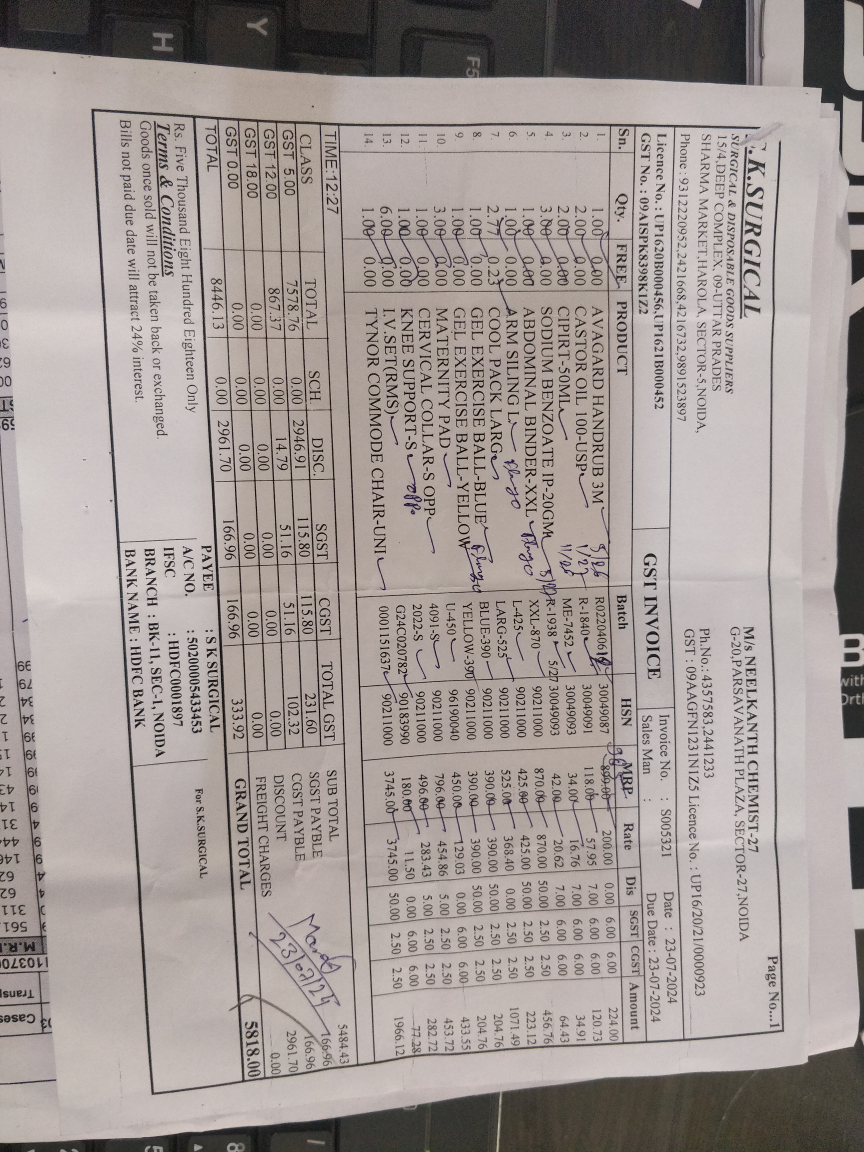 Page No...1
.K.SURGICAL
SURGICAL & DISPOSABLE GOODS SUPPLIERS
15/4,DEEP COMPLEX, 09-UTTAR PRADES
SHARMA MARKET,HAROLA, SECTOR-5,NOIDA,
Phone : 9312220952,2421668,4216732,9891523897
M/s NEELKANTH CHEMIST-27
G-20,PARSAVANATH PLAZA, SECTOR-27,NOIDA
Ph.No.: 4357583,2441233
GST : 09AAGFN1231N1Z5 Licence No. : UP16/20/21/0000923
Licence No. : UP1620B000456,UP1621B000452
GST No. : 09AISPK8398K1Z2
GST INVOICE
Invoice No. : S005321 Date : 23-07-2024
Sales Man : Due Date : 23-07-2024
Sn. Qty. FREE PRODUCT Batch HSN MRP Rate Dis SGST CGST Amount
1. 1.00 0.00 AVAGARD HANDRUB 3M 5/26 30049087 200.00 0.00 6.00 6.00 224.00
2. 2.00 0.00 CASTOR OIL 100-USP 1/27 R-1840 30049091 118.00 57.95 7.00 6.00 6.00 120.73
3. 2.00 0.00 CIPIRT-50ML 11/26 ME-7452 30049093 34.00 16.76 7.00 6.00 6.00 34.91
4. 3.00 0.00 SODIUM BENZOATE IP-20GM R-1938 5/27 30049093 42.00 20.62 7.00 6.00 6.00 64.43
5. 1.00 0.00 ABDOMINAL BINDER-XXL XXL-870 90211000 870.00 870.00 50.00 2.50 2.50 456.76
6. 1.00 0.00 ARM SILING L L-425 90211000 425.00 425.00 50.00 2.50 2.50 223.12
7. 2.77 0.23 COOL PACK LARG LARG-525 90211000 525.00 368.40 0.00 2.50 2.50 1071.49
8. 1.00 0.00 GEL EXERCISE BALL-BLUE BLUE-390 90211000 390.00 390.00 50.00 2.50 2.50 204.76
9. 1.00 0.00 GEL EXERCISE BALL-YELLOW YELLOW-390 90211000 390.00 390.00 50.00 2.50 2.50 204.76
10. 3.00 0.00 MATERNITY PAD U-450 96190040 450.00 129.03 0.00 6.00 6.00 433.55
11. 1.00 0.00 CERVICAL COLLAR-S OPP 4091-S 90211000 796.00 454.86 5.00 2.50 2.50 453.72
12. 1.00 0.00 KNEE SUPPORT-S opp 2022-S 90211000 496.00 283.43 5.00 2.50 2.50 282.72
13. 6.00 0.00 I.V.SET(RMS) G24C020782 90183990 180.00 11.50 0.00 6.00 6.00 77.28
14. 1.00 0.00 TYNOR COMMODE CHAIR-UNI 0001151637 90211000 3745.00 3745.00 50.00 2.50 2.50 1966.12
TIME:12:27
CLASS TOTAL SCH. DISC. SGST CGST TOTAL GST
GST 5.00 7578.76 0.00 2946.91 115.80 115.80 231.60
GST 12.00 867.37 0.00 14.79 51.16 51.16 102.32
GST 18.00 0.00 0.00 0.00 0.00 0.00
GST 0.00 0.00 0.00 0.00 0.00 0.00
TOTAL 8446.13 0.00 2961.70 166.96 166.96 333.92
SUB TOTAL 5484.43
SGST PAYBLE 166.96
CGST PAYBLE 166.96
DISCOUNT 2961.70
FREIGHT CHARGES 0.00
GRAND TOTAL 5818.00
23/07/24
Rs. Five Thousand Eight Hundred Eighteen Only
Terms & Conditions
Goods once sold will not be taken back or exchanged.
Bills not paid due date will attract 24% interest.
PAYEE : S K SURGICAL
A/C NO. : 50200005433453
IFSC : HDFC0001897
BRANCH : BK-11, SEC-1, NOIDA
BANK NAME : HDFC BANK
For S.K.SURGICAL